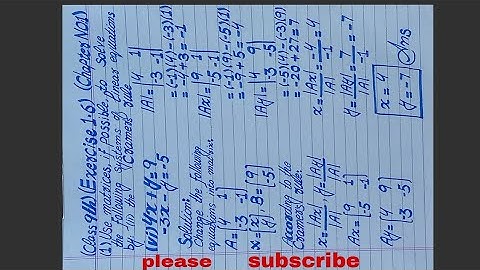 (Class 9th) (Exercise 1.6) (Chapter No1)
(1) Use matrices, if possible, to Solve
the following systems of linear equations
by (ii) the Cramers rule.
(vi) 4x+y=9
-3x-y=-5
Solution:
Change the following
equations into matrix.
A=[4 1
-3 -1]
X=[x
y], B=[9
-5]
According to the
Cramers rule.
x=|Ax|/|A|, y=|Ay|/|A|
Ax=[9 1
-5 -1]
Ay=[4 9
-3 -5]
|A|=|4 1
-3 -1|
=(-1)(4)-(-3)(1)
=-4+3=-1
|Ax|=|9 1
-5 -1|
=(-1)(9)-(-5)(1)
=-9+5=-4
|Ay|=|4 9
-3 -5|
=(-5)(4)-(-3)(9)
=-20+27=7
x=|Ax|/|A|=-4/-1=4
y=|Ay|/|A|=7/-1=-7
x=4
y=-7 Ans
please subscribe